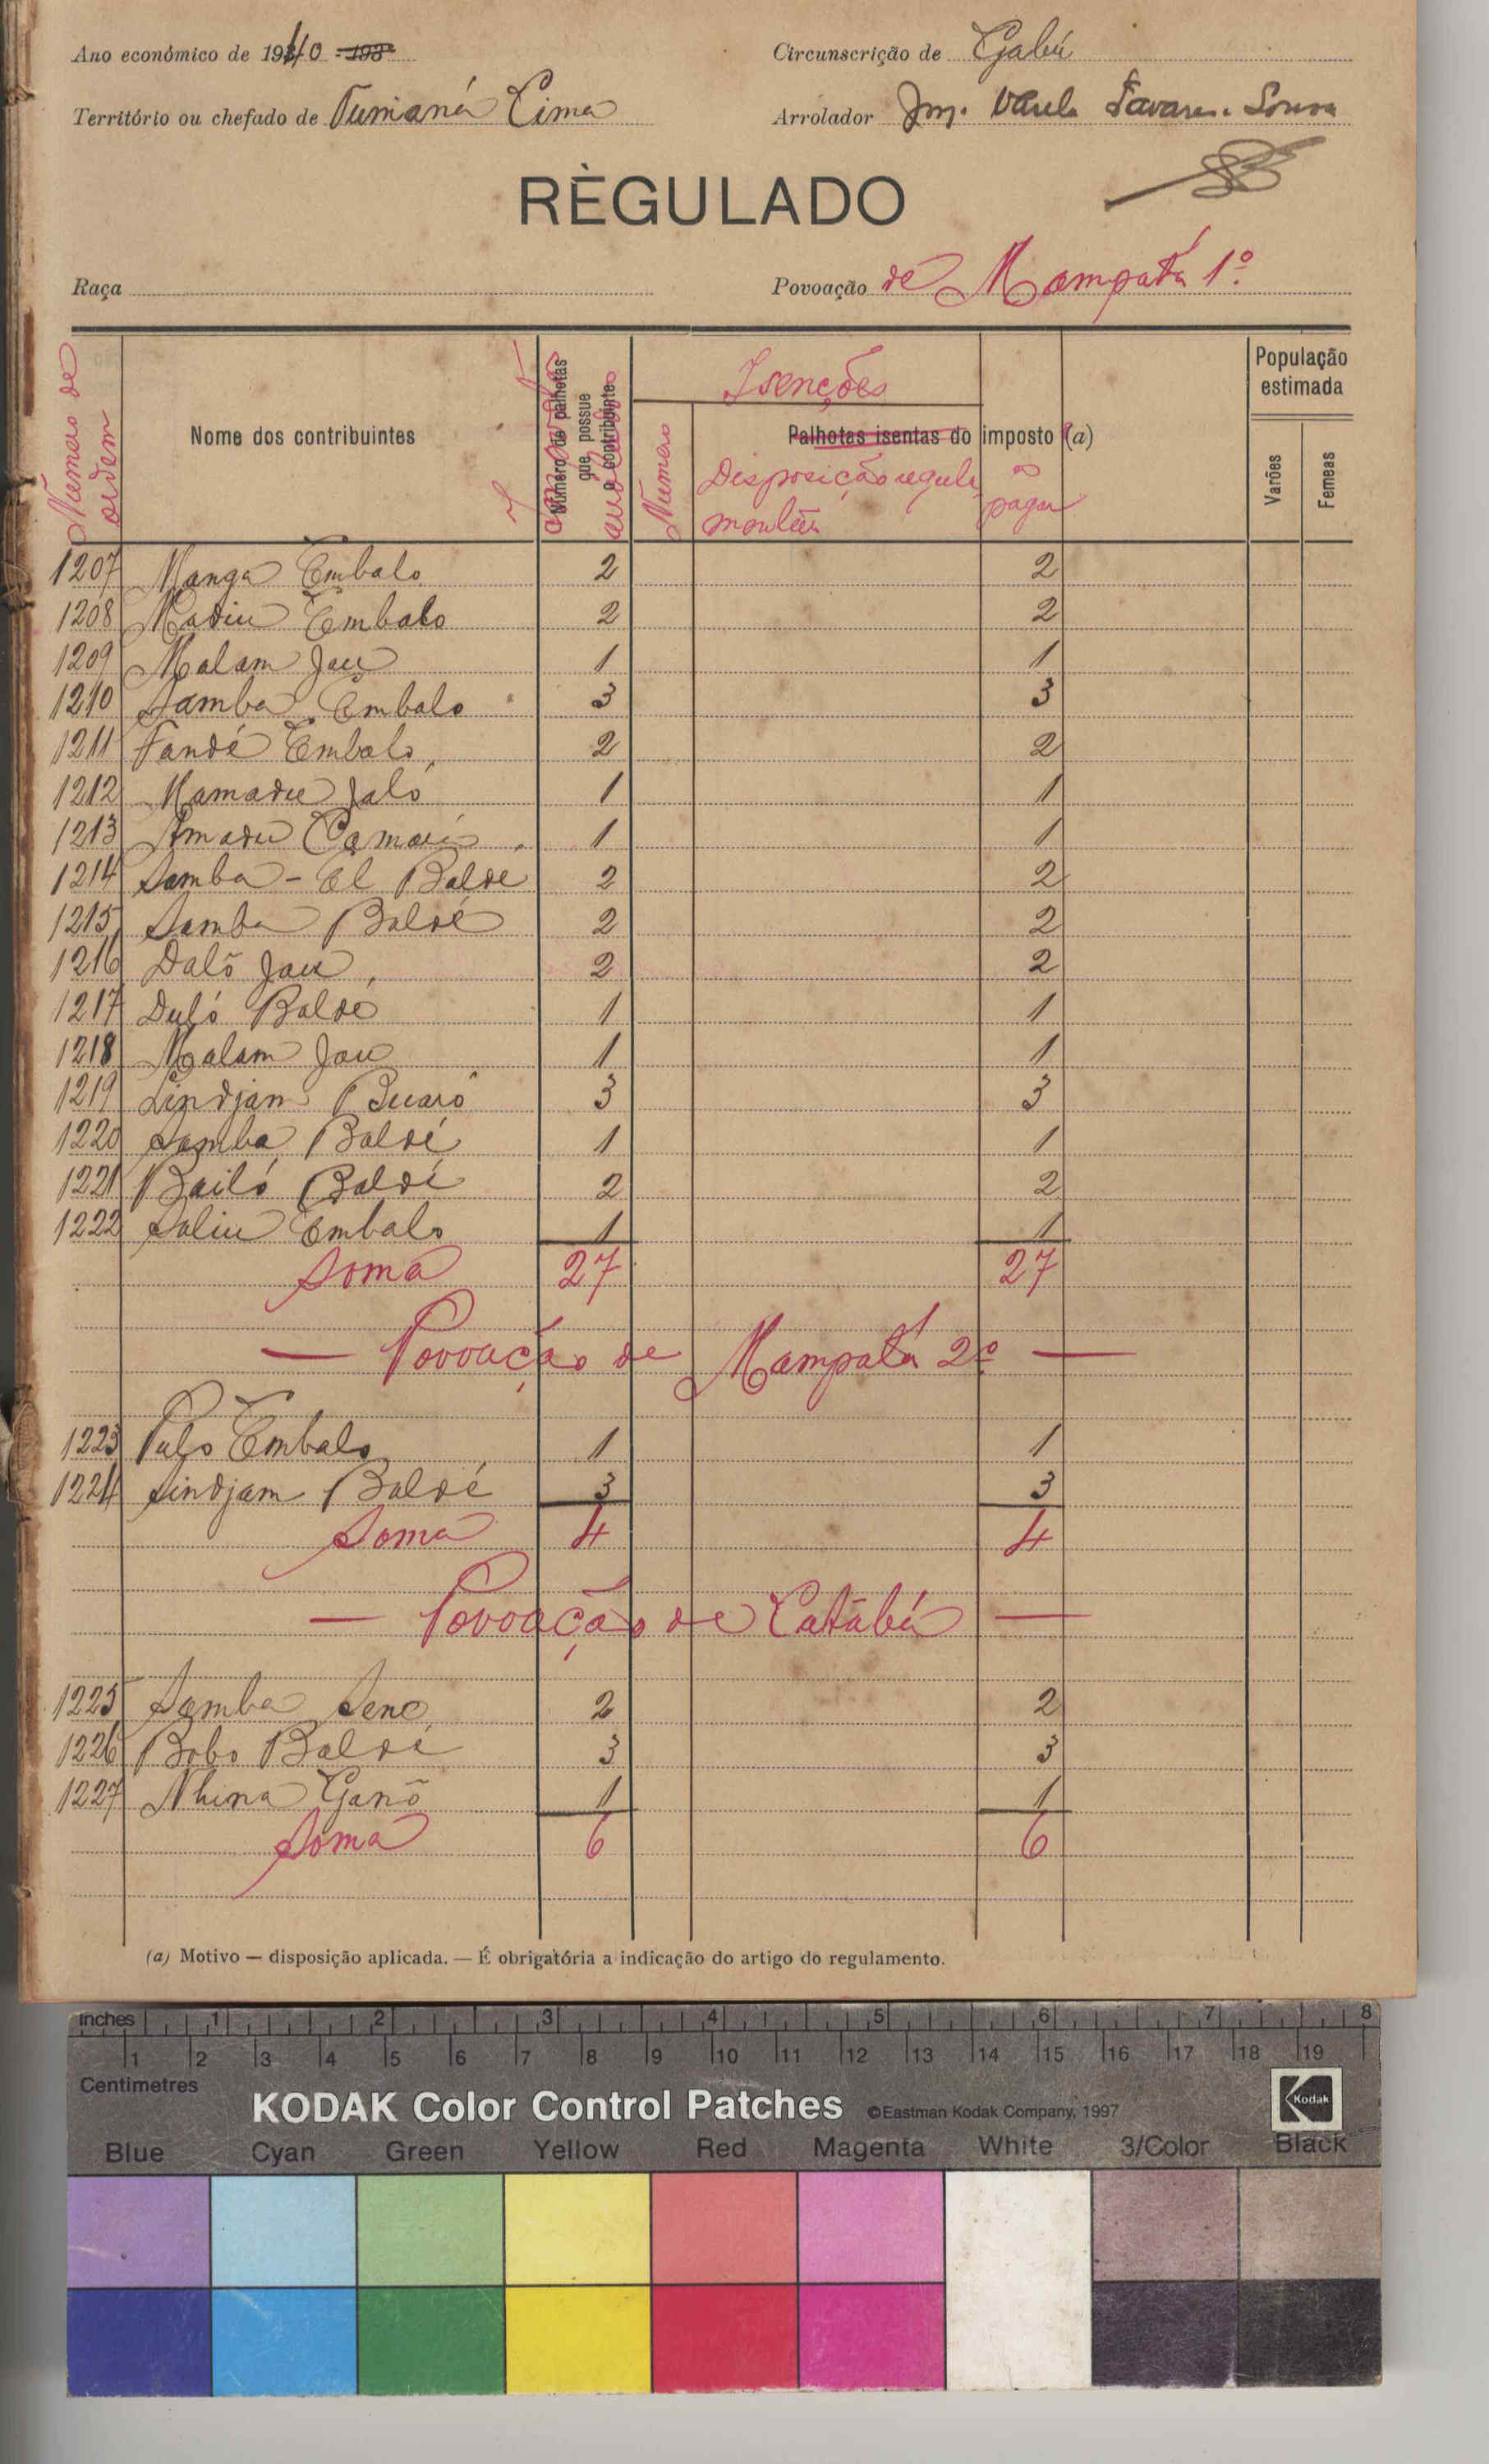 Ano económico de 1940 - 193
Circunscrição de Gabú
Território ou chefado de Tumaná Cima
Arrolador Jm. Varela Tavares. Sousa
RÈGULADO
Raça
Povoação de Mampatá 1º
Número de ordem
Nome dos contribuintes
Número de palhotas que possue o contribuinte
Isenções
Número
Palhotas isentas do imposto (a)
Disposição regulamentar
a pagar
População estimada
Varões
Femeas
1207 Manga Embalo 2 2
1208 Madiu Embalo 2 2
1209 Malam Jau 1 1
1210 Samba Embalo 3 3
1211 Fandé Embalo 2 2
1212 Mamadu Jaló 1 1
1213 Amadu Camará 1 1
1214 Samba - El Balde 2 2
1215 Samba Baldé 2 2
1216 Daló Jau 2 2
1217 Duló Baldé 1 1
1218 Malam Jau 1 1
1219 Lindjam Buaró 3 3
1220 Samba Baldé 1 1
1221 Bailó Baldé 2 2
1222 Saliu Embalo 1 1
Soma 27 27
— Povoação de Mampatá 2º —
1223 Pulo Embalo 1 1
1224 Sindjam Baldé 3 3
Soma 4 4
— Povoação de Catabá —
1225 Samba Seno 2 2
1226 Bobo Baldé 3 3
1227 Nhima Ganó 1 1
Soma 6 6
(a) Motivo — disposição aplicada. — É obrigatória a indicação do artigo do regulamento.
inches 1 2 3 4 5 6 7 8
1 2 3 4 5 6 7 8 9 10 11 12 13 14 15 16 17 18 19
Centimetres
KODAK Color Control Patches ©Eastman Kodak Company, 1997 Kodak
Blue Cyan Green Yellow Red Magenta White 3/Color Black